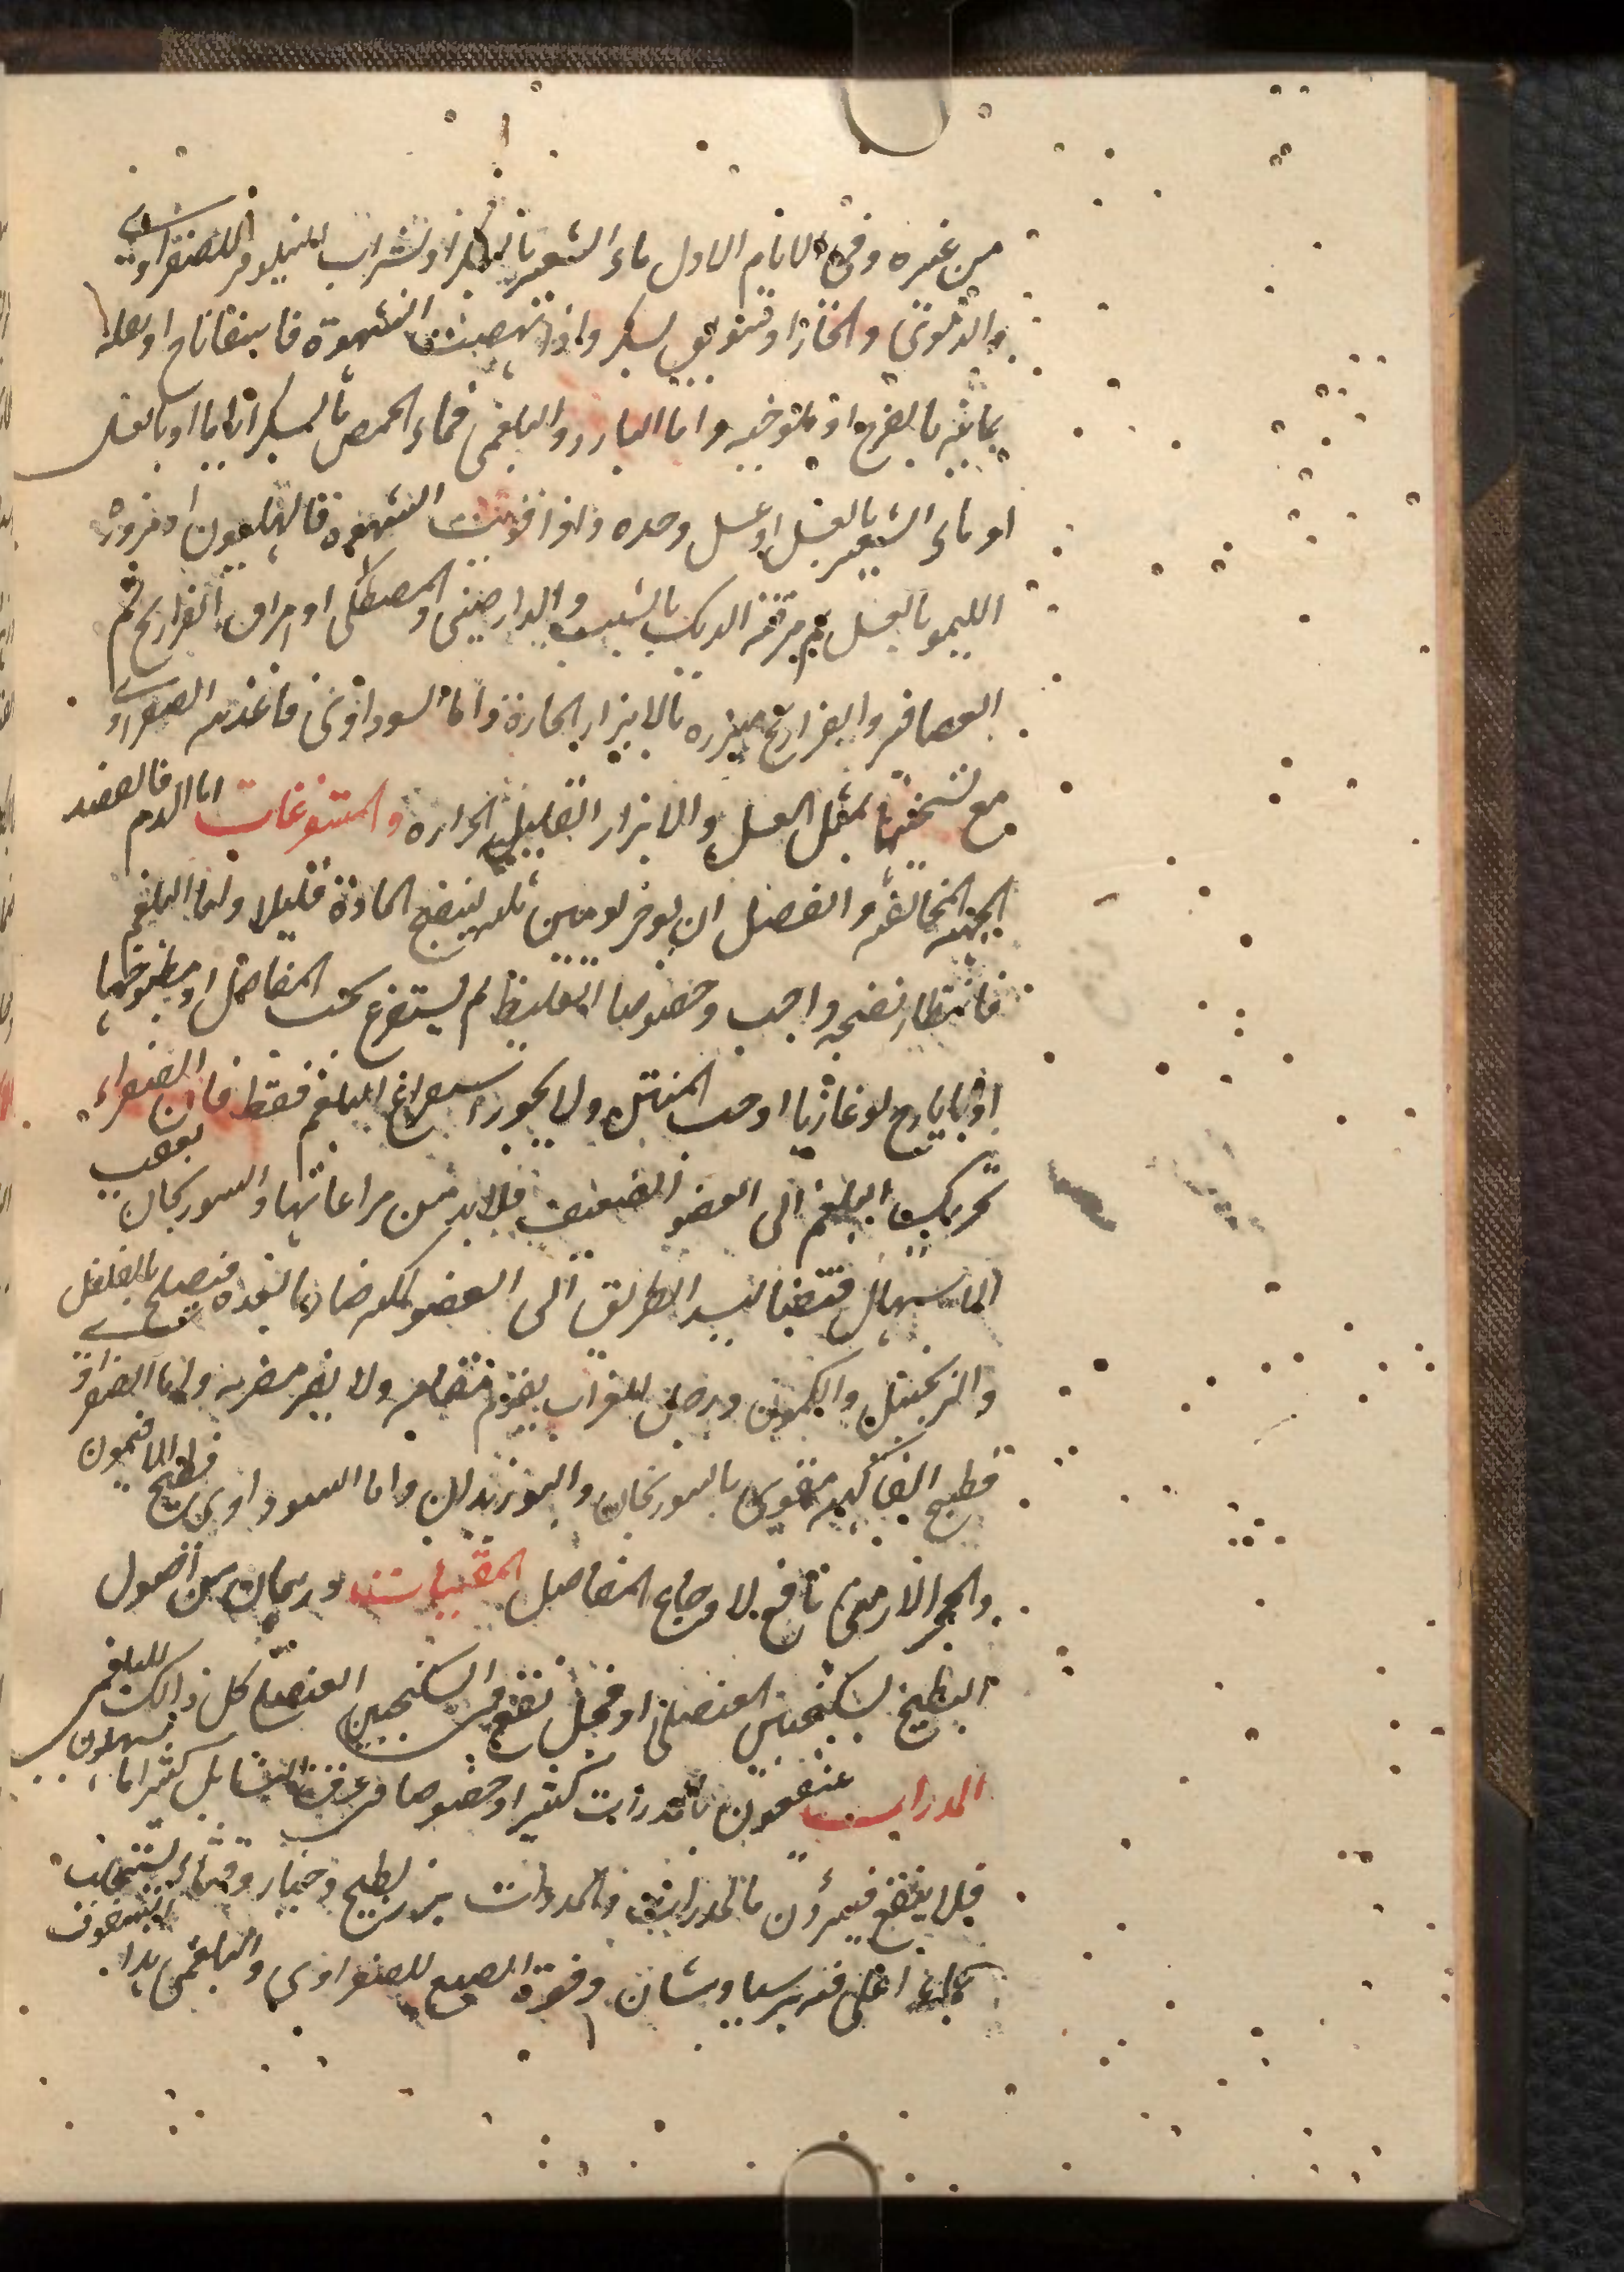 من غيره وفى الايام الاول ماء الشعير بالسكر او شراب النيلوفر للصفراوى
والدموى والخبازا وسويق بسكر واذا نهضت الشهوة فاسفاناخ او بقلة
يمانيه بالفرع او ملوخيه واما البارد والبلغمى فماء الحمص بالسكر اياما او بالعسل
او ماء الشعير بالعسل او عسل وحده واذا قويت الشهوة فالهليون او مزورة
الليمو بالعسل ثم مرقة الديك بالشبت والدارصينى والمصطكى او امراق الفراريج ثم
العصافير والفراريج مبزره بالابزار الحارة واما السوداوى فاغذية الصفراوى
مع تسخينها بمثل العسل والابزار القليل الحراره والمستفرغات اما الدم فالفصد
الجهة المخالفة والفصل ان يوخر يومين ثلثه لينضج المادة قليلا واما البلغم
فانتظار نضجه واجب وخصوصا الغليظ ثم يستفرغ بحب المفاصل او مطبوخها
او بايارج لوغاذيا او حب المنتن ولا يجوز استفراغ البلغم فقط فان الصفراء
تحريك البلغم الى العضو الضعيف فلابد من مراعاتها والسورنجان يعقب
الاسهال قبضا ليسد الطريق الى العضو لكنه ضار بالمعدة فيصلح بالفلفل
والزنجبيل والكمون ورجل الغراب يقوم مقامه ولا يضر مضرته واما الصفراوى
فطبيخ الفاكهه مقوى بالسورنجان والبوزيدان واما السوداوى فطبيخ الافتيمون
والحجر الارمنى نافع لاوجاع المفاصل المقيئات درهمان من اصول
البطيخ بسكنجبين العنصلى او فجل نقع فى السكنجبين العنصلى كل ذالك للبلغمى
المدرات منتفعون بالمدرات كثيرا وخصوصا فى عرق النسا بل كثيرا ما يسهلون
فلا ينفع فيبرؤن بالمدرات والمدرات بزر بطيخ وخيار وقثاء يستحلب
بماء اغلى فيه برسياوشان وقوة الصبغ للصفراوى والبلغمى بدا